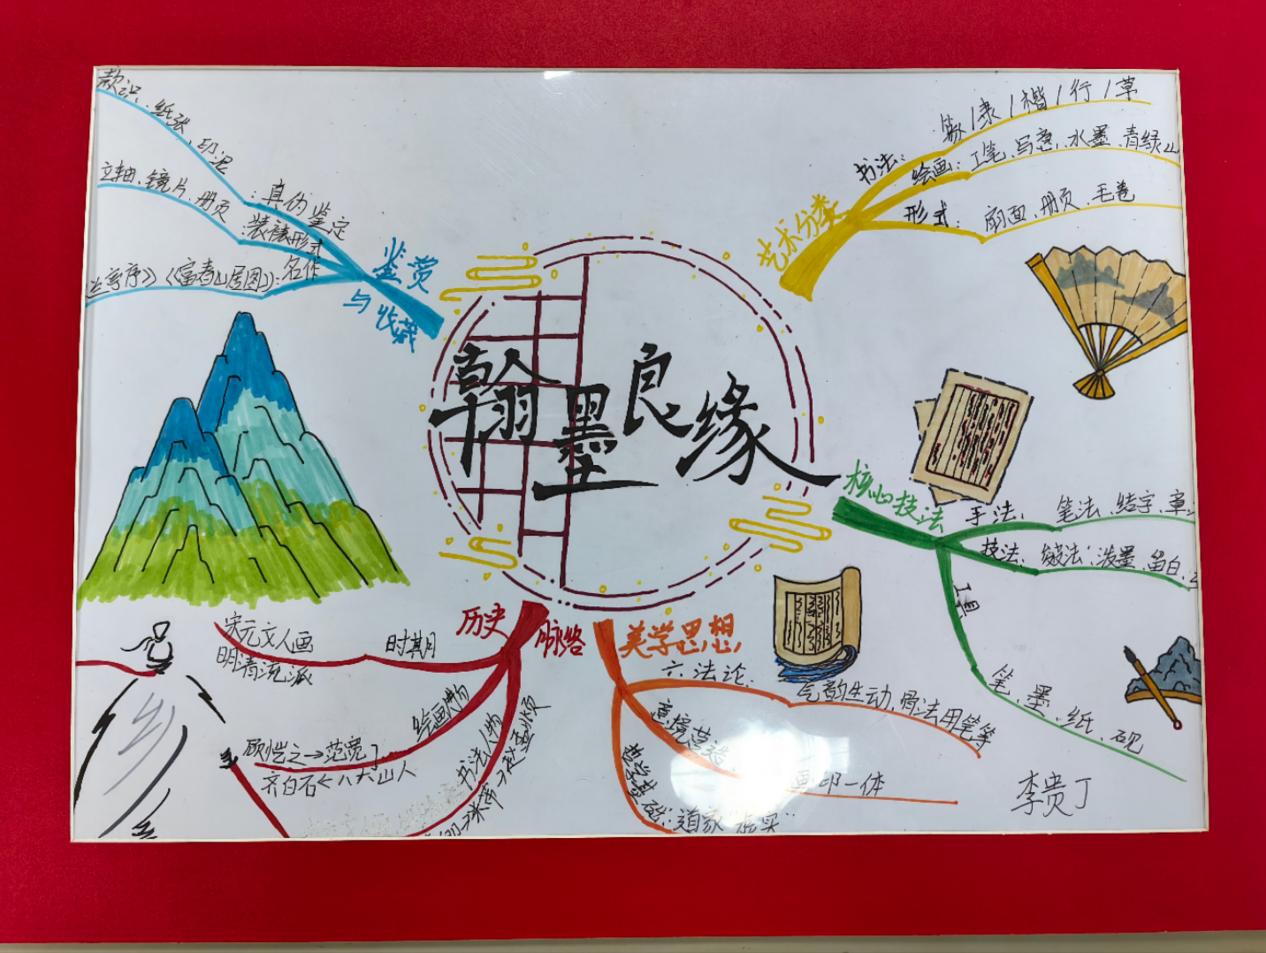 翰墨良缘
艺术分类
书法：篆/隶/楷/行/草
绘画：工笔、写意、水墨、青绿山
形式：扇面、册页、毛卷
核心技法
手法、笔法、结字、章
技法、皴法：泼墨、留白、
工具
笔、墨、纸、砚
美学思想
六法论
气韵生动，骨法用笔等
画印一体
道家"虚实"
历史脉络
时期
宋元文人画
明清流派
绘画人物
顾恺之→范宽
齐白石←八大山人
书法人物
鉴赏与收藏
：真伪鉴定
款识、纸张、印泥
：装裱形式
立轴、镜片、册页
：名作
兰亭序》《富春山居图》
李贵丁